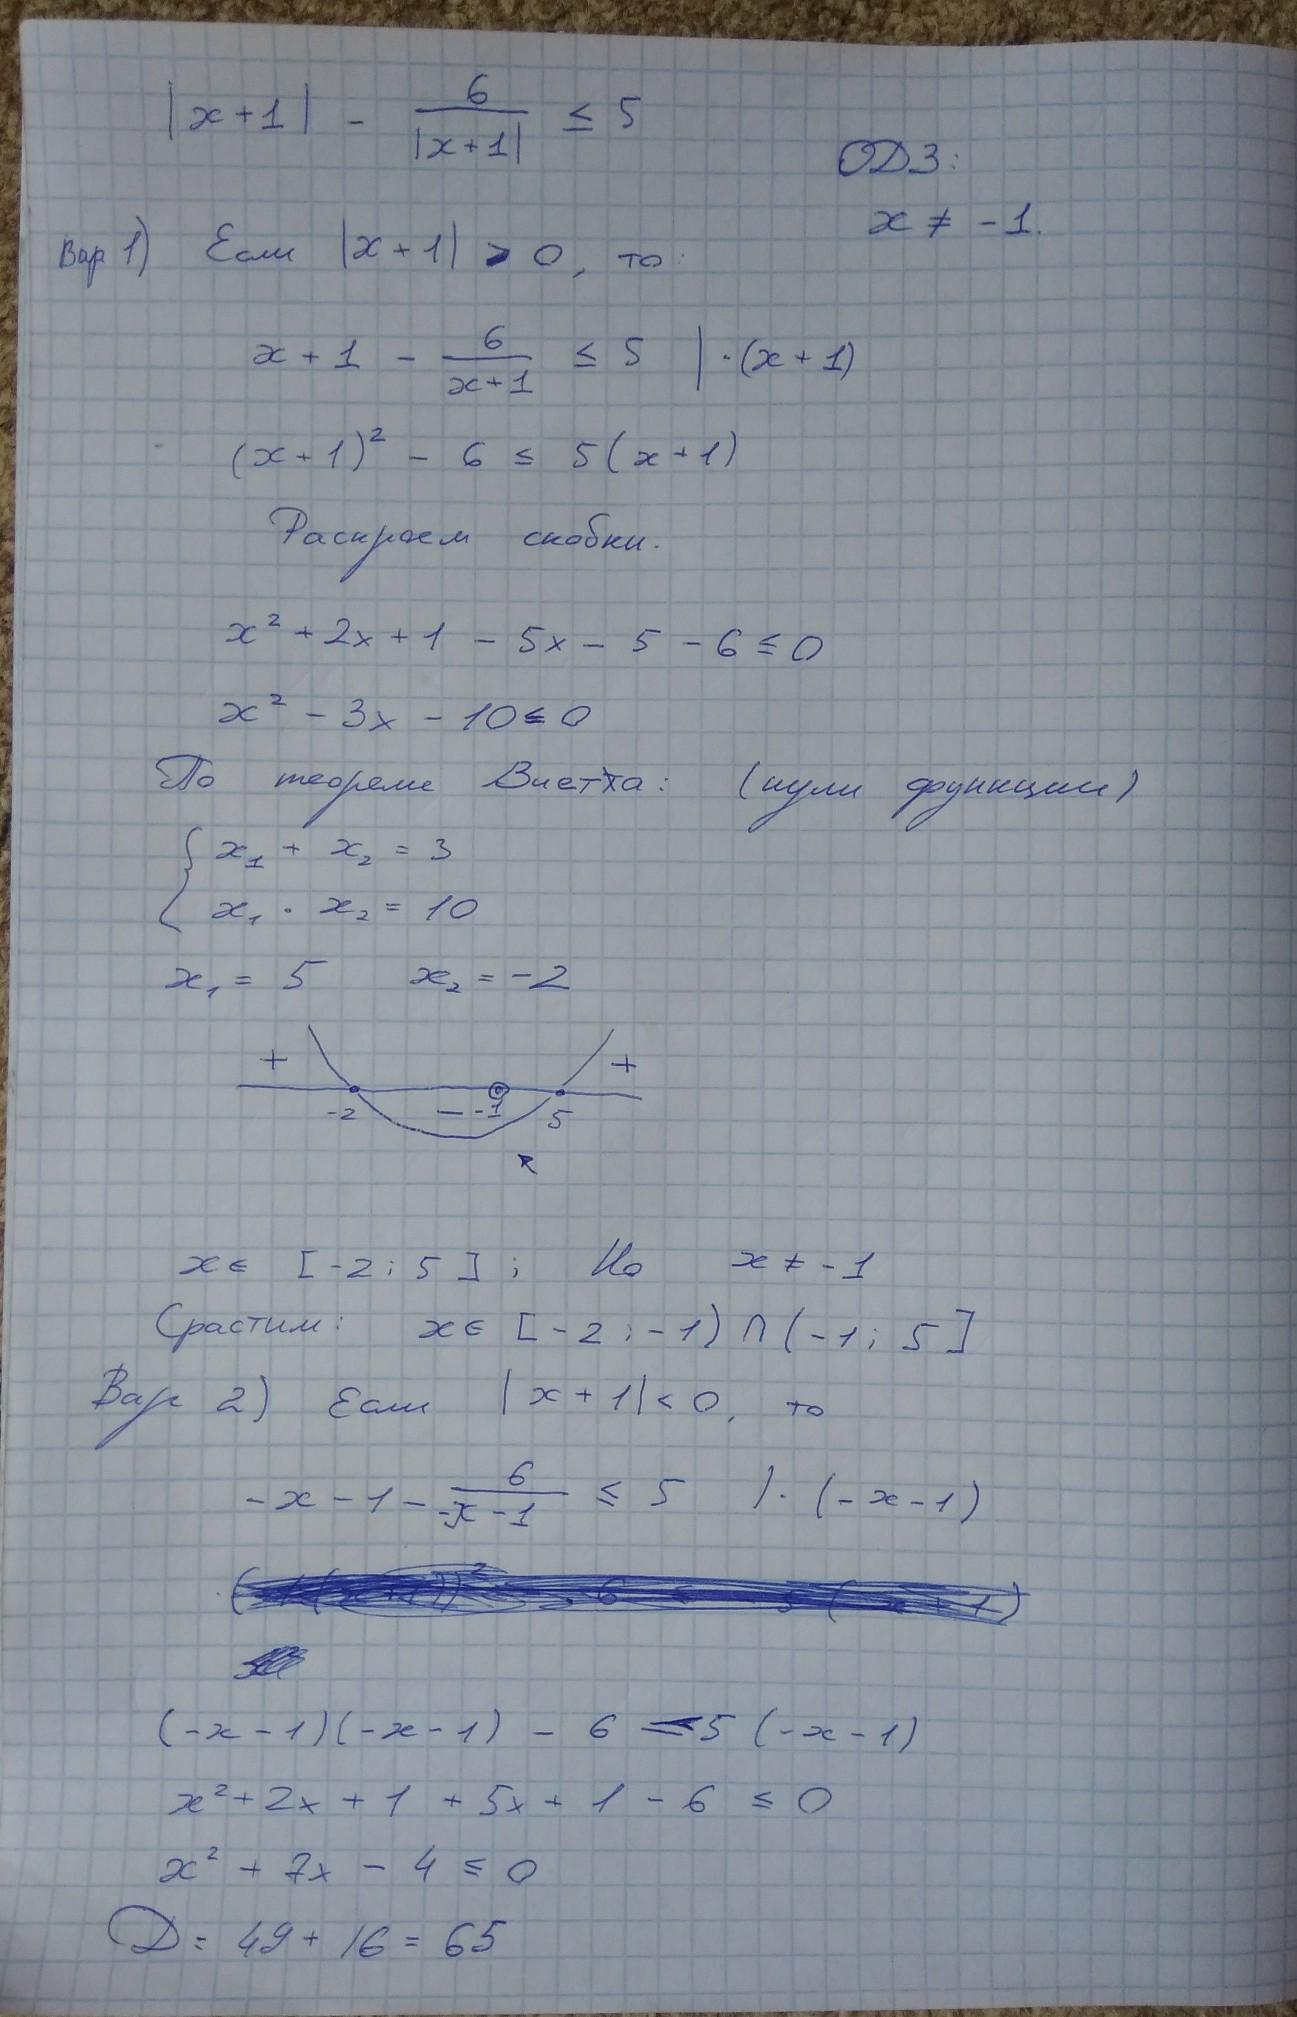 |x+1| - 6/|x+1| ≤ 5
ОДЗ:
x ≠ -1.
Вар 1) Если |x+1| > 0, то:
x + 1 - 6/(x+1) ≤ 5 | ·(x+1)
(x+1)² - 6 ≤ 5(x+1)
Раскроем скобки.
x² + 2x + 1 - 5x - 5 - 6 ≤ 0
x² - 3x - 10 ≤ 0
По теореме Виетта: (нули функции)
x₁ + x₂ = 3
x₁ · x₂ = 10
x₁ = 5 x₂ = -2
+ +
-2 - -1 5
x ∈ [-2; 5]; Но x ≠ -1
Срастим: x ∈ [-2; -1) ∩ (-1; 5]
Вар 2) Если |x+1| < 0, то
-x - 1 - 6/(-x-1) ≤ 5 |· (-x-1)
(-x-1)(-x-1) - 6 ≤ 5(-x-1)
x² + 2x + 1 + 5x + 1 - 6 ≤ 0
x² + 7x - 4 ≤ 0
D = 49 + 16 = 65